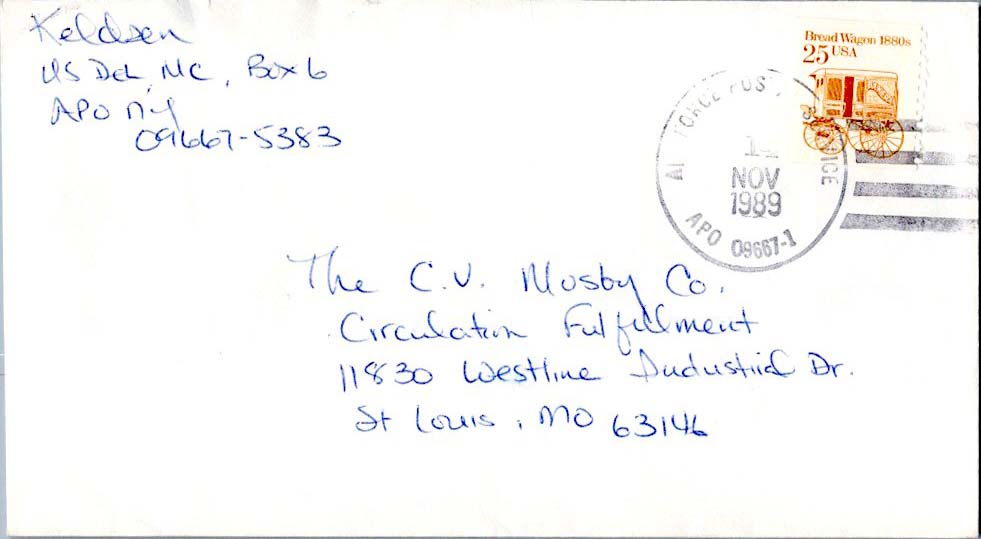 Keldsen
US Del, MC, Box 6
APO NY
09667-5383
Bread Wagon 1880s
25 USA
AIR FORCE POSTAL SERVICE
NOV
1989
APO 09667-1
The C.V. Mosby Co.
Circulation Fulfillment
11830 Westline Industrial Dr.
St Louis, MO 63146